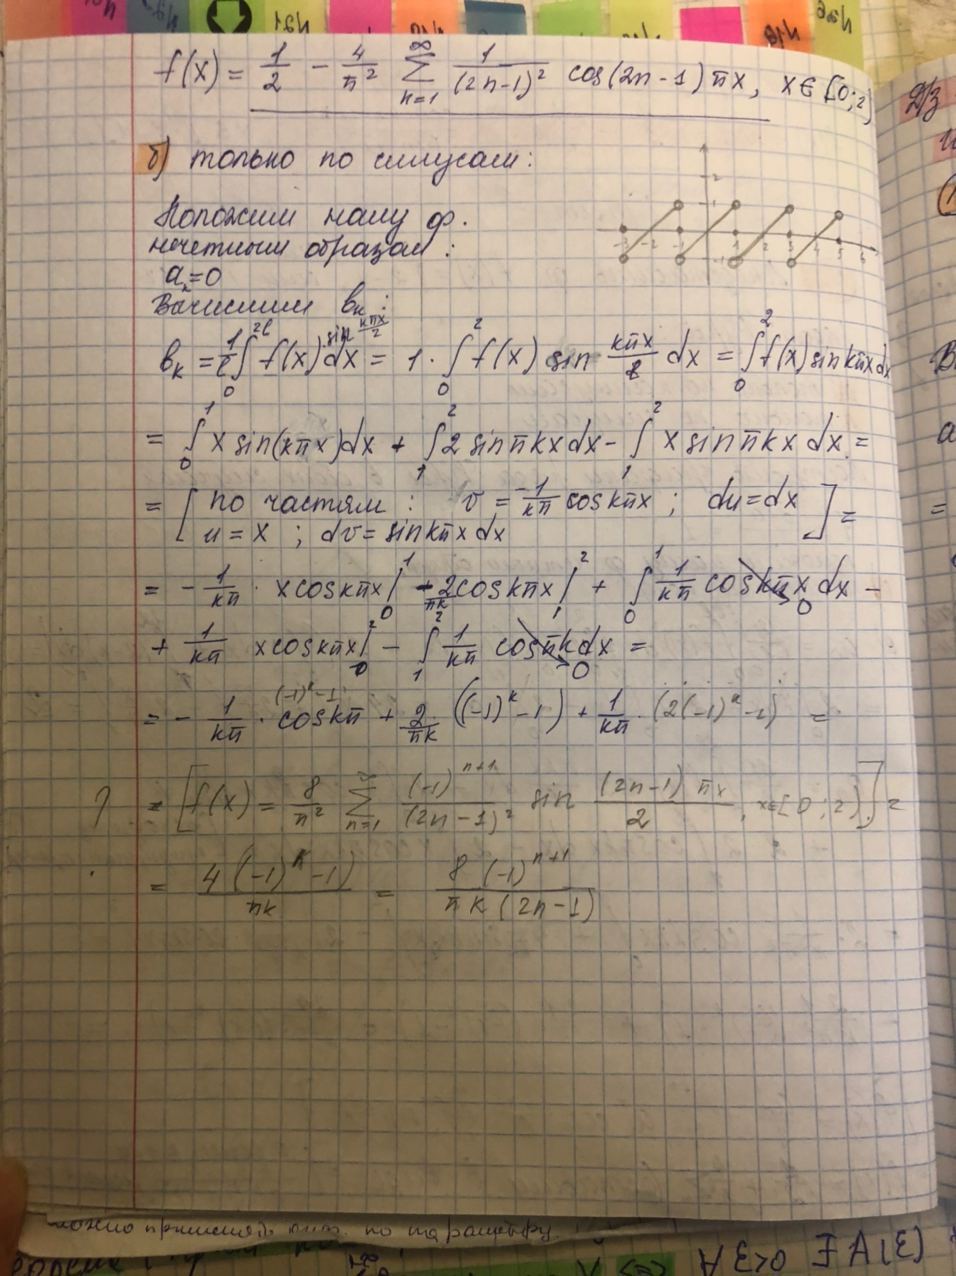 f(x) = 1/2 − 4/π² ∑_{n=1}^{∞} 1/(2n−1)² cos(2n−1)πx, x∈[0;2)
б) только по синусам:
Положим нашу ф.
нечетным образом:
aₖ=0
Вычислим bₖ:
bₖ = 1/l ∫₀^{2l} f(x) sin kπx/2 dx = 1·∫₀² f(x) sin kπx/l dx = ∫₀² f(x) sin kπx dx
= ∫₀¹ x sin(kπx)dx + ∫₁² 2 sin πkx dx − ∫₁² x sin πkx dx =
= [ по частям : v = −1/kπ cos kπx ; du = dx
u = x ; dv = sin kπx dx ] =
= − 1/kπ · x cos kπx |₀¹ − 2/πk cos kπx |₁² + ∫₀¹ 1/kπ cos kπx dx −
+ 1/kπ x cos kπx |₀² − ∫₁² 1/kπ cos πk dx =
(−1)ᵏ−1
= − 1/kπ · cos kπ + 2/πk ((−1)ᵏ −1) + 1/kπ · (2(−1)ᵏ −1) =
? = [f(x) = 8/π² ∑_{n=1}^{∞} (−1)^{n+1}/(2n−1)² sin (2n−1)πx/2, x∈[0;2)] =
= 4(−1)ᵏ−1)/πk = 8(−1)^{n+1}/πk(2n−1)
Д/З